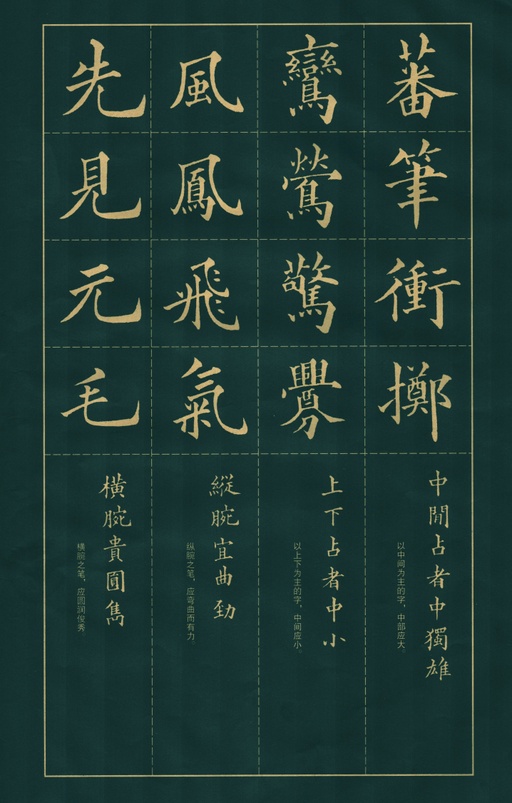 蕃筆衝擲
中間占者中獨雄
以中间为主的字，中部应大。
鸞鶯驚釁
上下占者中小
以上下为主的字，中间应小。
風鳳飛氣
縱腕宜曲勁
纵腕之笔，应弯曲而有力
先見元毛
橫腕貴圓雋
横腕之笔，应圆润俊秀